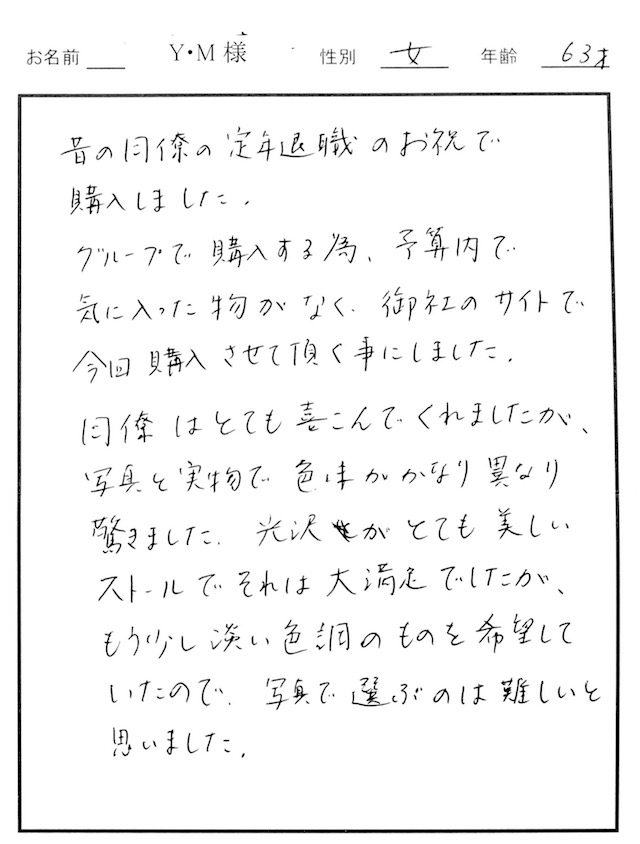 お名前 Y・M 様 性別 女 年齢 63才
昔の同僚の定年退職のお祝で
購入しました。
グループで購入する為、予算内で
気に入った物がなく、御社のサイトで
今回購入させて頂く事にしました。
同僚はとても喜こんでくれましたが、
写真と実物で色味がかなり異なり
驚きました。光沢がとても美しい
ストールでそれは大満足でしたが、
もう少し淡い色調のものを希望して
いたので、写真で選ぶのは難しいと
思いました。